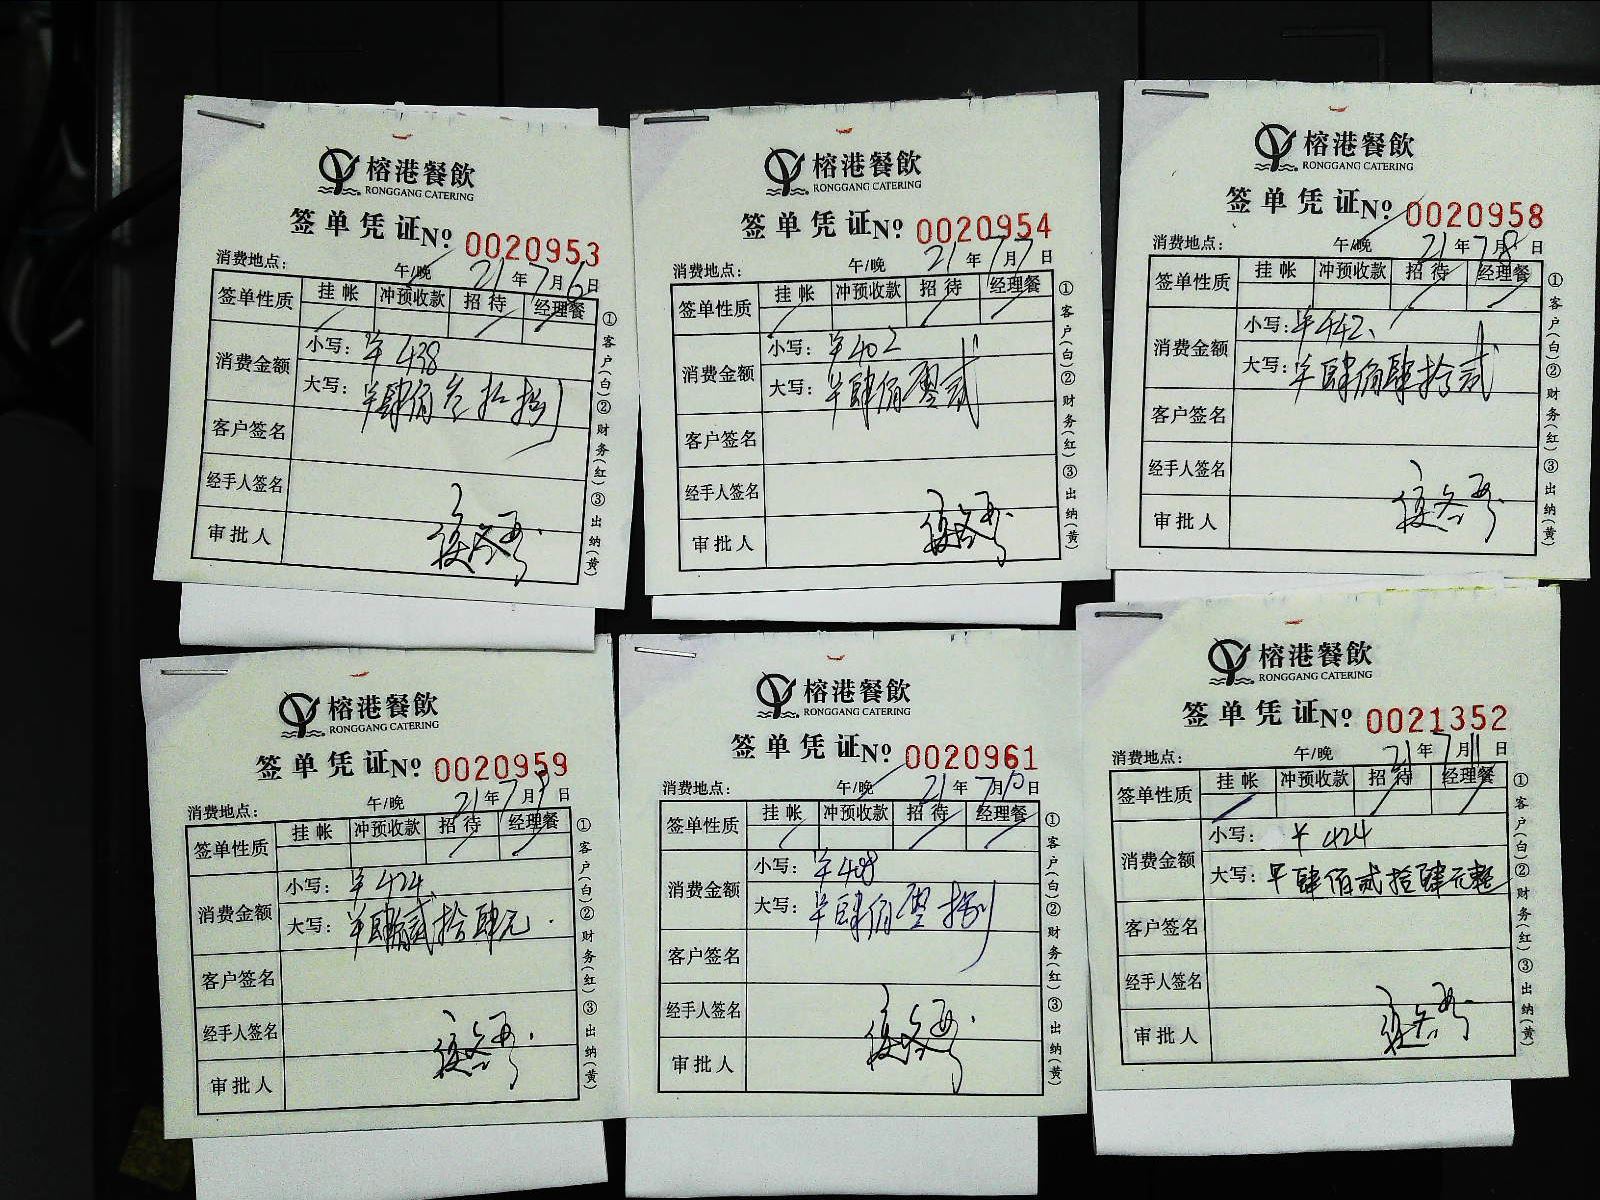 榕港餐飲
RONGGANG CATERING
签单凭证 No 0020953
消费地点： 午/晚 21年7月6日
签单性质 挂帐 冲预收款 招待 经理餐
消费金额 小写：￥438
大写：￥肆佰叁拾捌
客户签名
经手人签名
审批人
①客户(白)②财务(红)③出纳(黄)
榕港餐飲
RONGGANG CATERING
签单凭证 No 0020954
消费地点： 午/晚 21年7月7日
签单性质 挂帐 冲预收款 招待 经理餐
消费金额 小写：￥402
大写：￥肆佰零贰
客户签名
经手人签名
审批人
①客户(白)②财务(红)③出纳(黄)
榕港餐飲
RONGGANG CATERING
签单凭证 No 0020958
消费地点： 午/晚 21年7月8日
签单性质 挂帐 冲预收款 招待 经理餐
消费金额 小写：￥442
大写：￥肆佰肆拾贰
客户签名
经手人签名
审批人
①客户(白)②财务(红)③出纳(黄)
榕港餐飲
RONGGANG CATERING
签单凭证 No 0020959
消费地点： 午/晚 21年7月9日
签单性质 挂帐 冲预收款 招待 经理餐
消费金额 小写：￥424
大写：￥肆佰贰拾肆元
客户签名
经手人签名
审批人
①客户(白)②财务(红)③出纳(黄)
榕港餐飲
RONGGANG CATERING
签单凭证 No 0020961
消费地点： 午/晚 21年7月10日
签单性质 挂帐 冲预收款 招待 经理餐
消费金额 小写：￥408
大写：￥肆佰零捌
客户签名
经手人签名
审批人
①客户(白)②财务(红)③出纳(黄)
榕港餐飲
RONGGANG CATERING
签单凭证 No 0021352
消费地点： 午/晚 21年7月11日
签单性质 挂帐 冲预收款 招待 经理餐
消费金额 小写：￥424
大写：￥肆佰贰拾肆元整
客户签名
经手人签名
审批人
①客户(白)②财务(红)③出纳(黄)